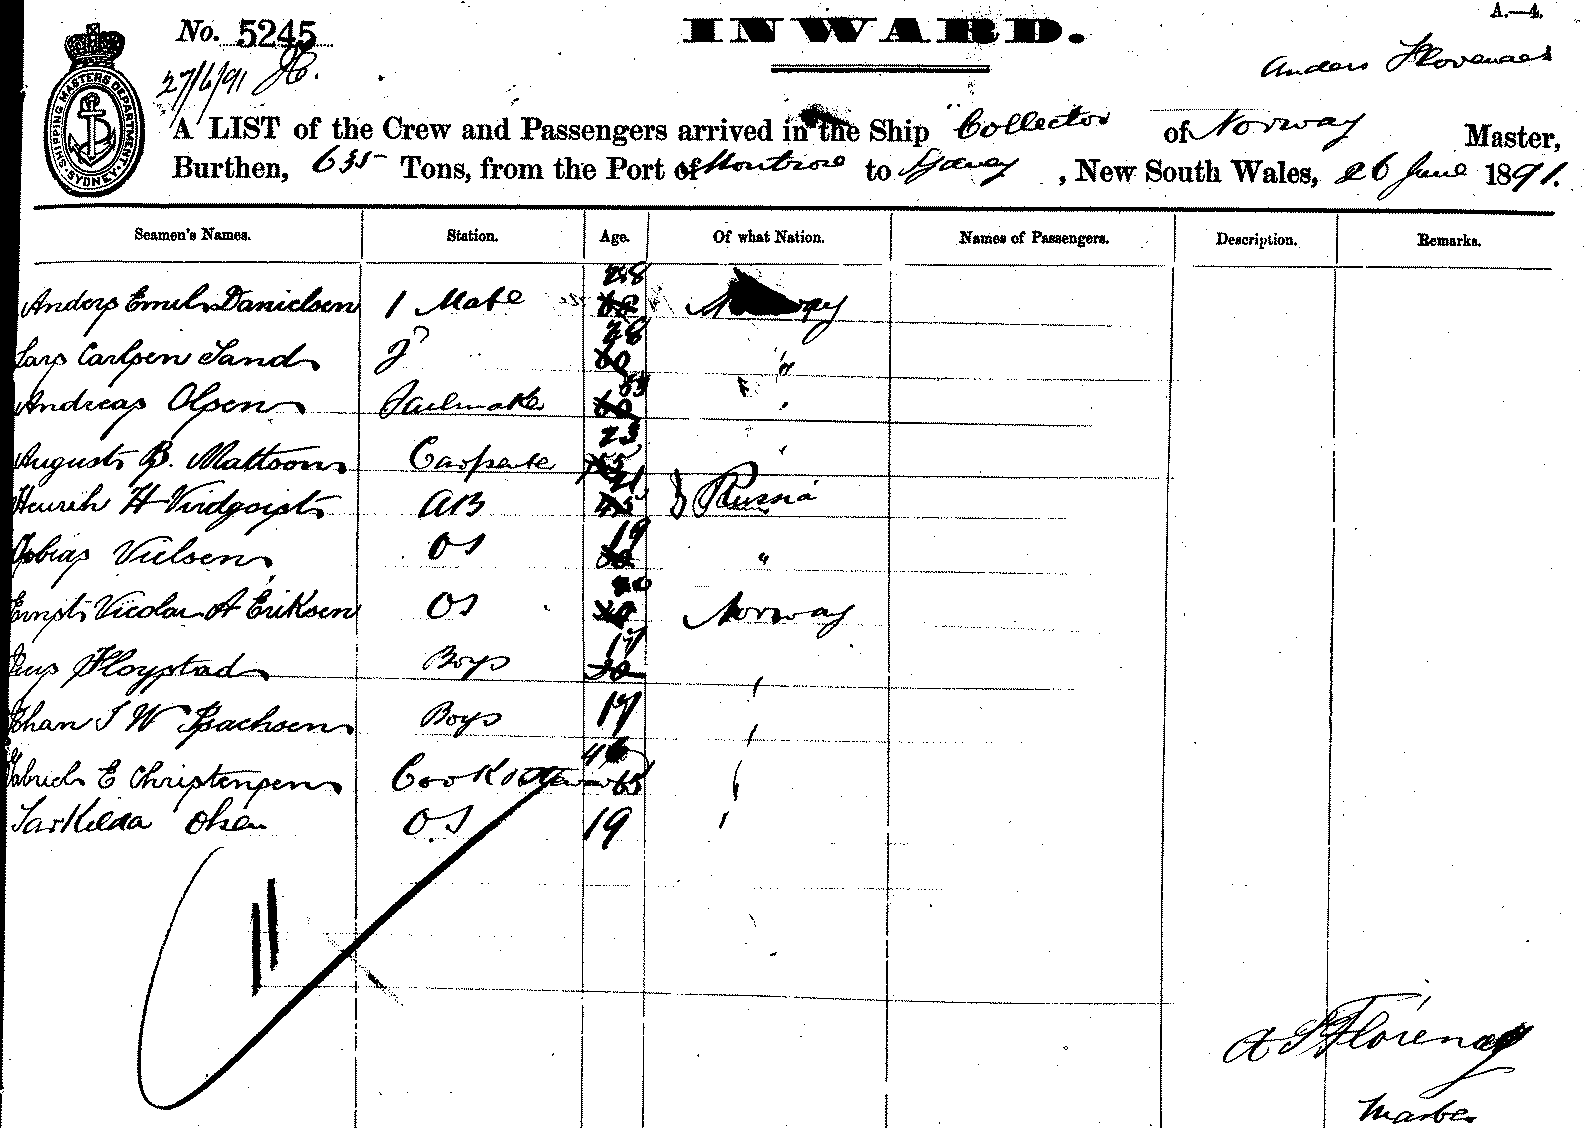 No. 5245
INWARD.
A.—4.
27/6/91
Anders
SHIPPING MASTERS DEPARTMENT SYDNEY
A LIST of the Crew and Passengers arrived in the Ship "Collector of Norway Master,
Burthen, 635 Tons, from the Port of Montrose to Sydney, New South Wales, 26 June 1891.
Seamen's Names. Station. Age. Of what Nation. Names of Passengers. Description. Remarks.
Anders Emil Danielsen 1 Mate 28 Norway
Lars Carlsen Sand 2 28 "
Andreas Olsen Sailmaker "
August B. Mattson 23 "
H AB 21 Russia
Tobias OS 19 "
Ernst A Eriksen OS 20 Norway
Floystad Boys 17 "
Johan I W Isachsen Boys 17 "
E Christensen Cook "
Olsen OS 19 "
11
A
Master